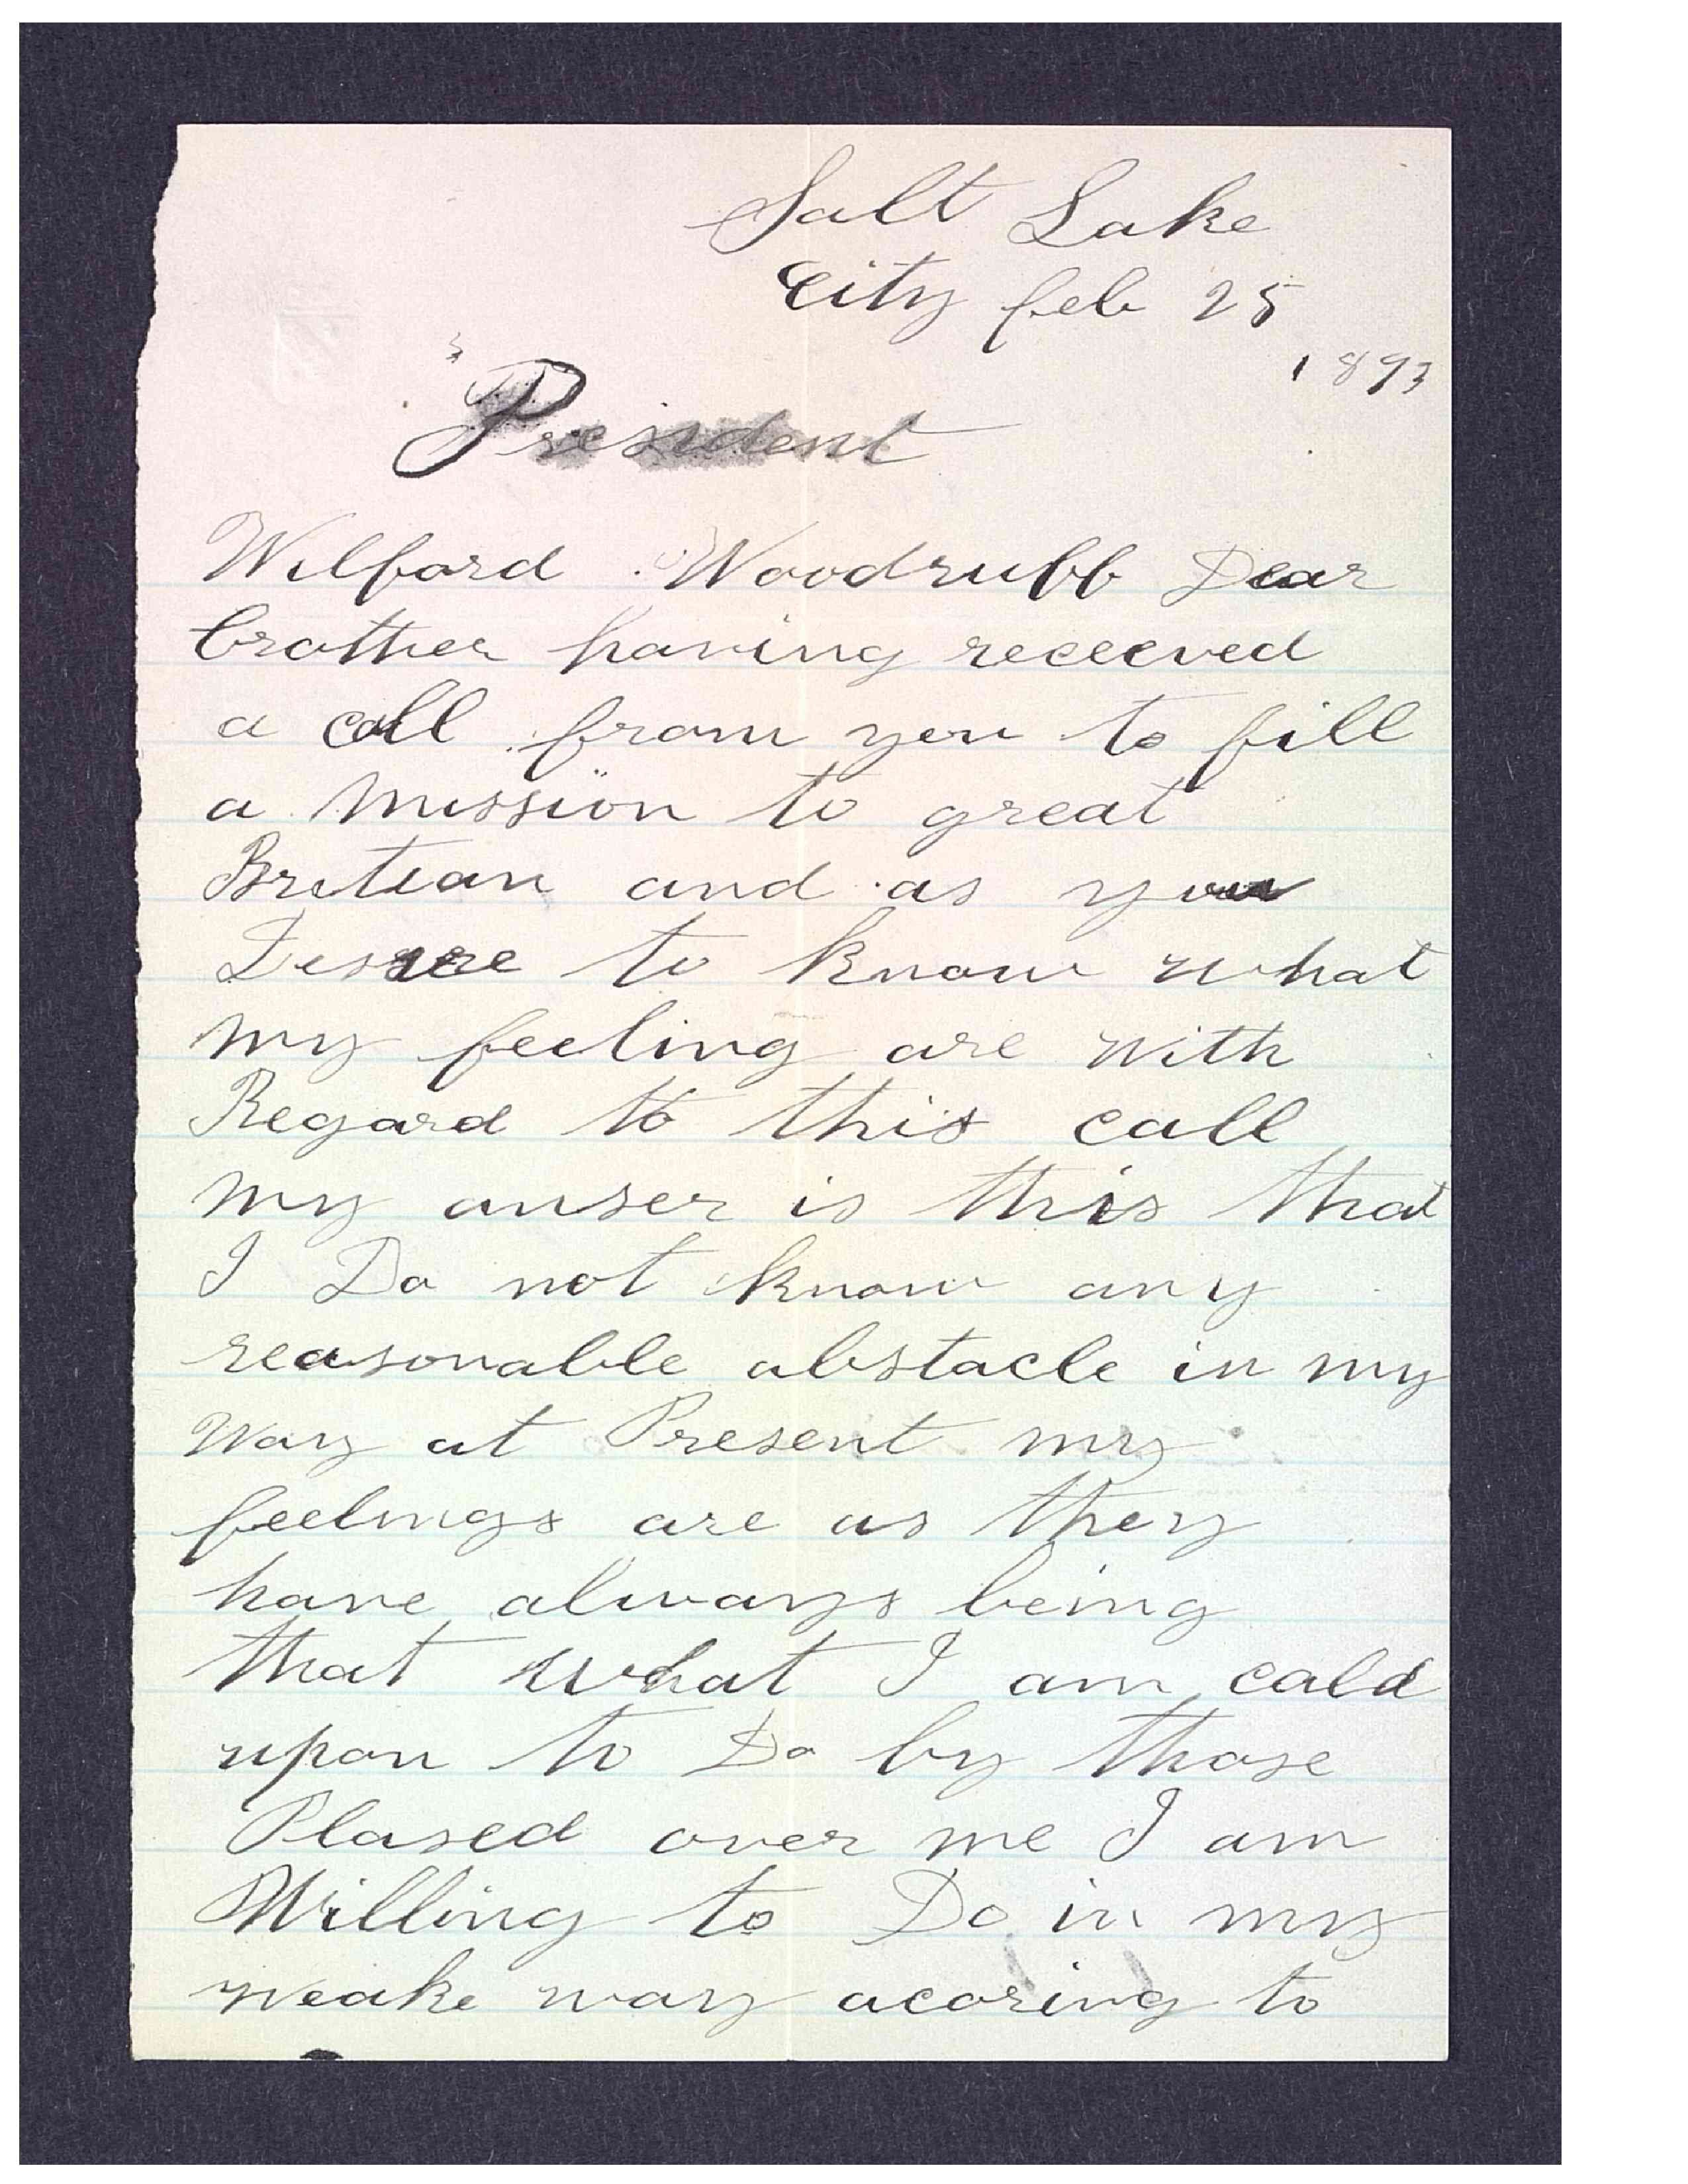 Salt Lake
City feb 25
1893
President
Wilford Woodruff Dear
brother having receeved
a call from you to fill
a mission to great
Bretean and as you
Desire to know what
my feeling are with
Regard to this call
my anser is this that
I Do not know any
reasonable obstacle in my
way at Present my
feelings are as they
have always being
that what I am cald
upon to Do by those
Plased over me I am
Willing to Do in my
weake way acoring to